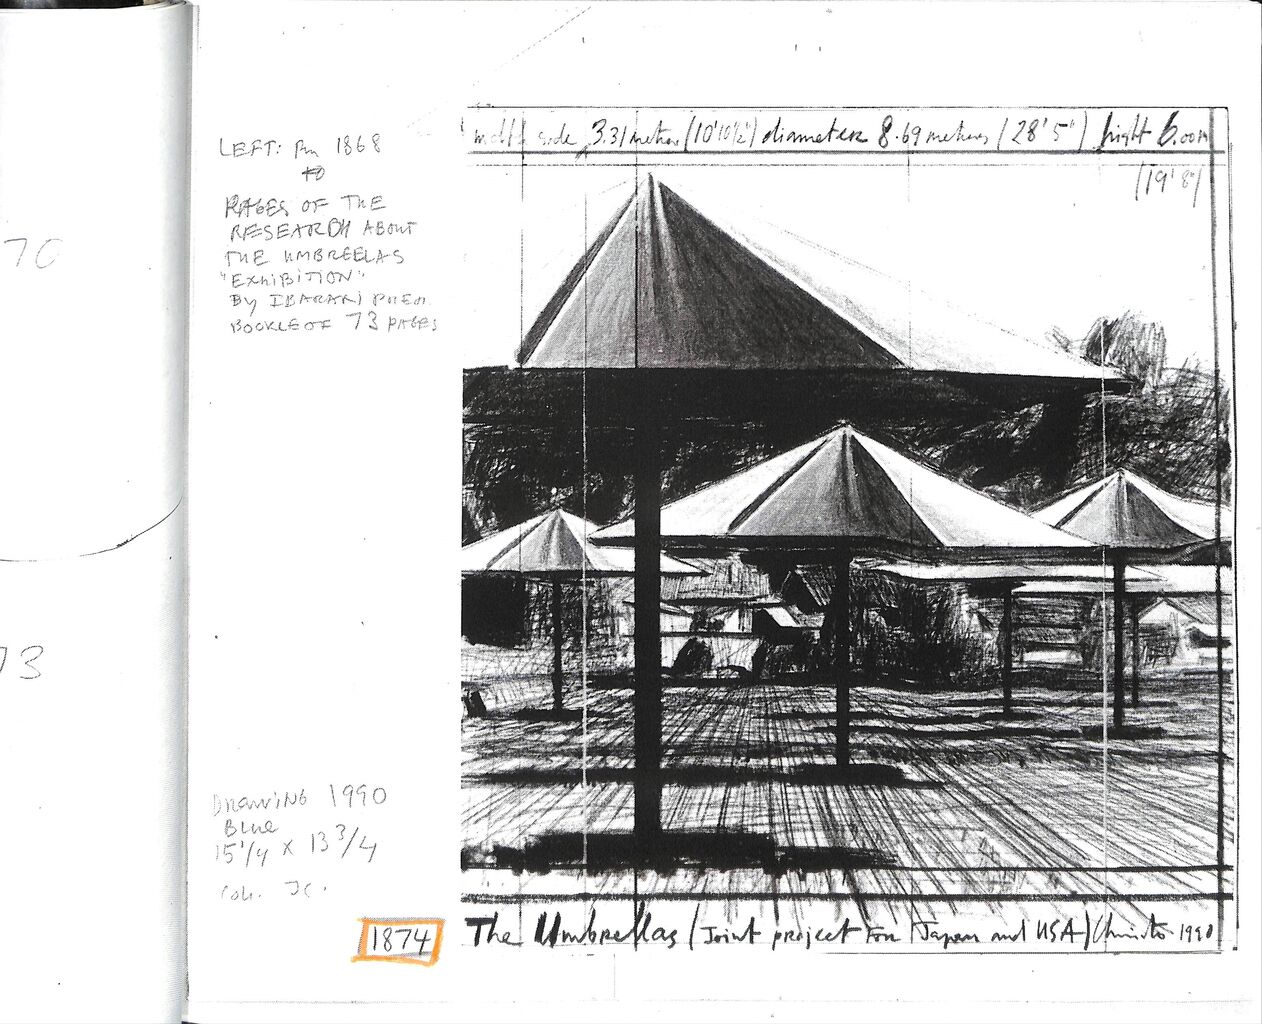 70
73
LEFT: 1868
PAGES OF THE
RESEARCH ABOUT
THE UMBREELAS
"EXHIBITION"
BY IBARAKI
BOOKLEOF 73 PAGES
DRAWING 1990
BLUE
15 1/4 X 13 3/4
COLL. JC.
1874
side 3.31 metres (10'10½") diameter 8.69 metres (28'5") hight 6.00M
(19'8")
The Umbrellas (Joint project for Japan and USA) Christo 1990